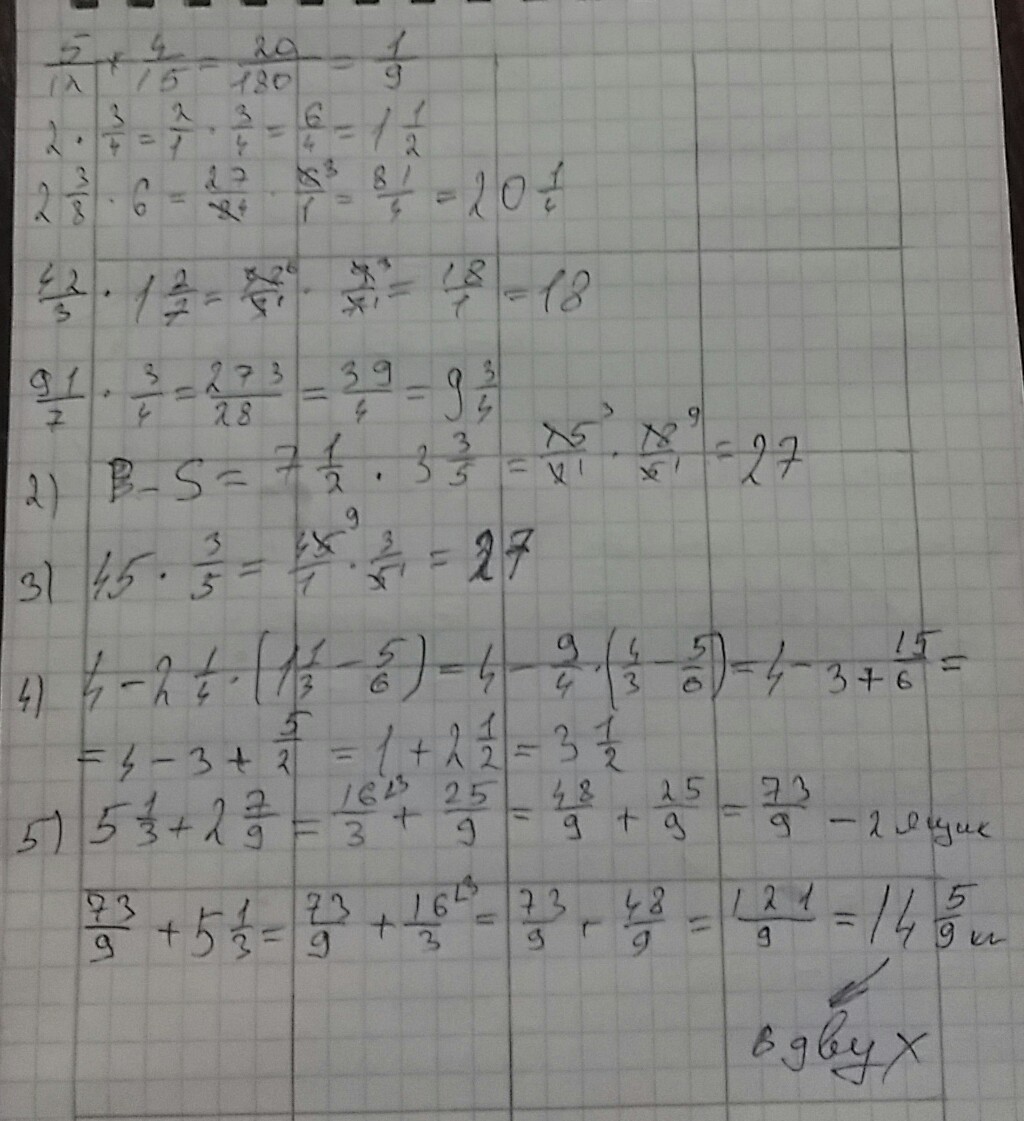 5/12 * 4/15 = 20/180 = 1/9
2 · 3/4 = 2/1 · 3/4 = 6/4 = 1 1/2
2 3/8 · 6 = 27/8 4 · 6 3/1 = 81/4 = 20 1/4
42/3 · 1 2/7 = 42 6/3 1 · 9 3/7 1 = 18/1 = 18
91/7 · 3/4 = 273/28 = 39/4 = 9 3/4
2) B - S = 7 1/2 · 3 3/5 = 15 3/2 1 · 18 9/5 1 = 27
3) 45 · 3/5 = 45 9/1 · 3/5 1 = 27
4) 4 - 2 1/4 · (1 1/3 - 5/6) = 4 - 9/4 · (4/3 - 5/6) = 4 - 3 + 15/6 =
= 4 - 3 + 5/2 = 1 + 2 1/2 = 3 1/2
5) 5 1/3 + 2 7/9 = 16/3 + 25/9 = 48/9 + 25/9 = 73/9 - 2 ящик
73/9 + 5 1/3 = 73/9 + 16/3 = 73/9 + 48/9 = 121/9 = 14 5/9 кг
в двух